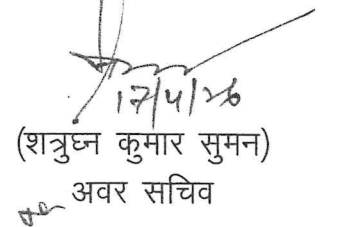 17/4/26
(शत्रुघ्न कुमार सुमन)
अवर सचिव